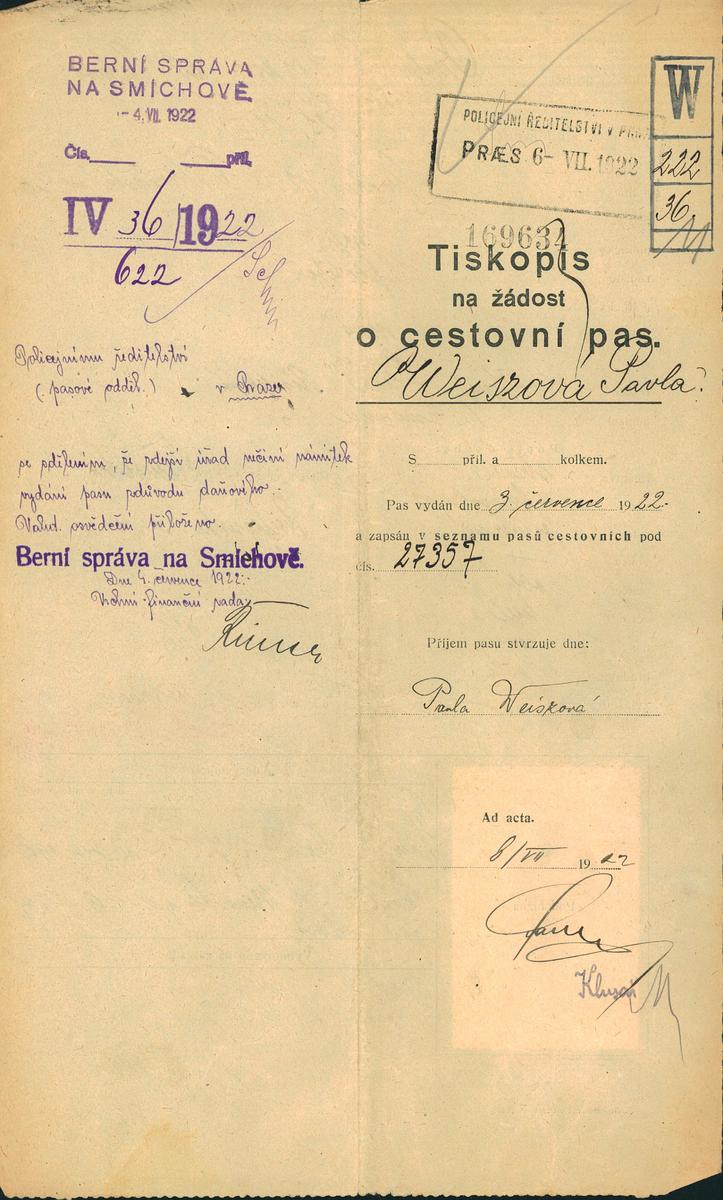 BERNÍ SPRÁVA
NA SMÍCHOVĚ
-4. VII. 1922
Čís. příl.
IV 36/1922
622
Policejnímu ředitelství
(pasové odděl.) v Praze
se sdělením, že zdejší úřad nečiní námitek
vydání pasu z důvodu daňového.
Valut. osvědčení přiloženo.
Berní správa na Smíchově.
Dne 4. července 1922.
Vrchní finanční rada:
W
222
36
POLICEJNÍ ŘEDITELSTVÍ V PRAZE
PRÆS 6- VII. 1922
169634
Tiskopis
na žádost
o cestovní pas.
Weiszová Pavla.
S příl. a kolkem.
Pas vydán dne 3. července 1922.
a zapsán v seznamu pasů cestovních pod
čís. 27357
Příjem pasu stvrzuje dne:
Pavla Weiszová
Ad acta.
8/VII 1922